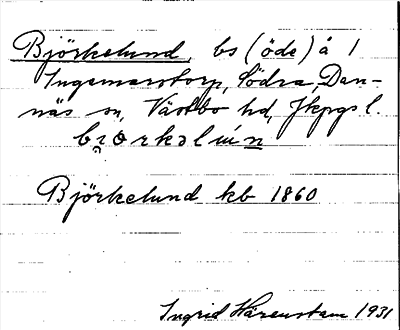 Björkelund, bs (öde) å 1
Ingemarstorp, Södra, Dan-
näs sn, Västbo hd, Jkpgs l.
Björkelund kb 1860
Ingrid Härenstam 1931